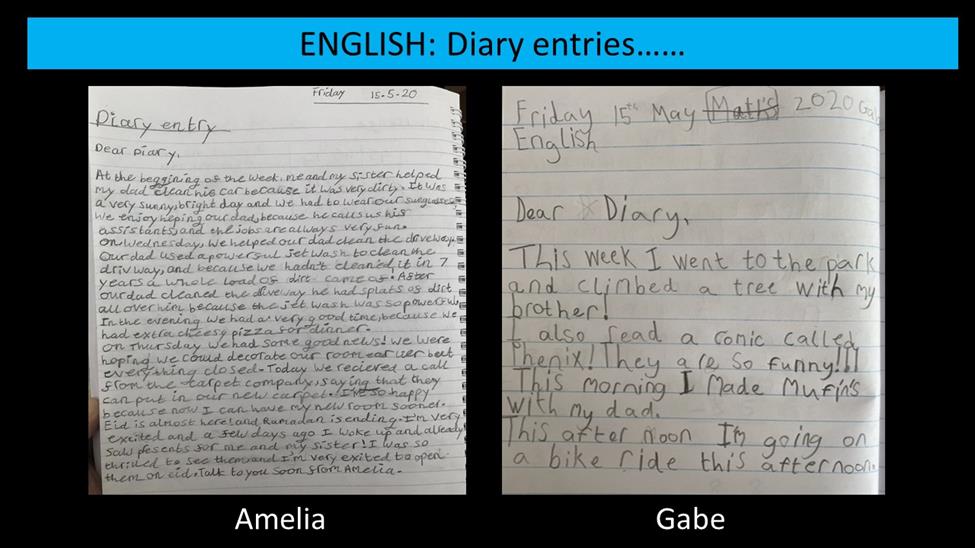 ENGLISH: Diary entries......
Friday 15-5-20
Diary entry
Dear Diary,
At the beggining of the week, me and my sister helped
my dad clean his car because it was very dirty. It was
a very sunny, bright day and we had to wear our sunglasses.
We enjoy heping our dad, because he calls us his
assistants, and the jobs are always very fun.
On Wednesday, we helped our dad clean the driveway.
Our dad used a powerful jet wash to clean the
drivway, and because we hadn't cleaned it in 7
years a whole load of dirt came of! After
our dad cleaned the driveway he had splats of dirt
all over him because the jet wash was so powerful.
In the evening we had a very good time, because we
had extra cheesy pizza for dinner.
On Thursday we had some good news! We were
hoping we could decorate our room earlier but
everything closed. Today we recieved a call
from the carpet company, saying that they
can put in our new carpet. I'm so happy
because now I can have my new room sooner.
Eid is almost here and Ramadan is ending. I'm very
excited and a few days ago I woke up and already
saw presents for me and my sister! I was so
thrilled to see them and I'm very exited to open
them on eid. Talk to you soon from Amelia.
Amelia
Friday 15th May Maths 2020 Gabe
English
Dear Diary,
This week I went to the park
and climbed a tree with my
brother!
I also read a comic called
Phenix! They are so funny!!!
This morning I made Mufin's
with my dad.
This after noon I'm going on
a bike ride this afternoon.
Gabe